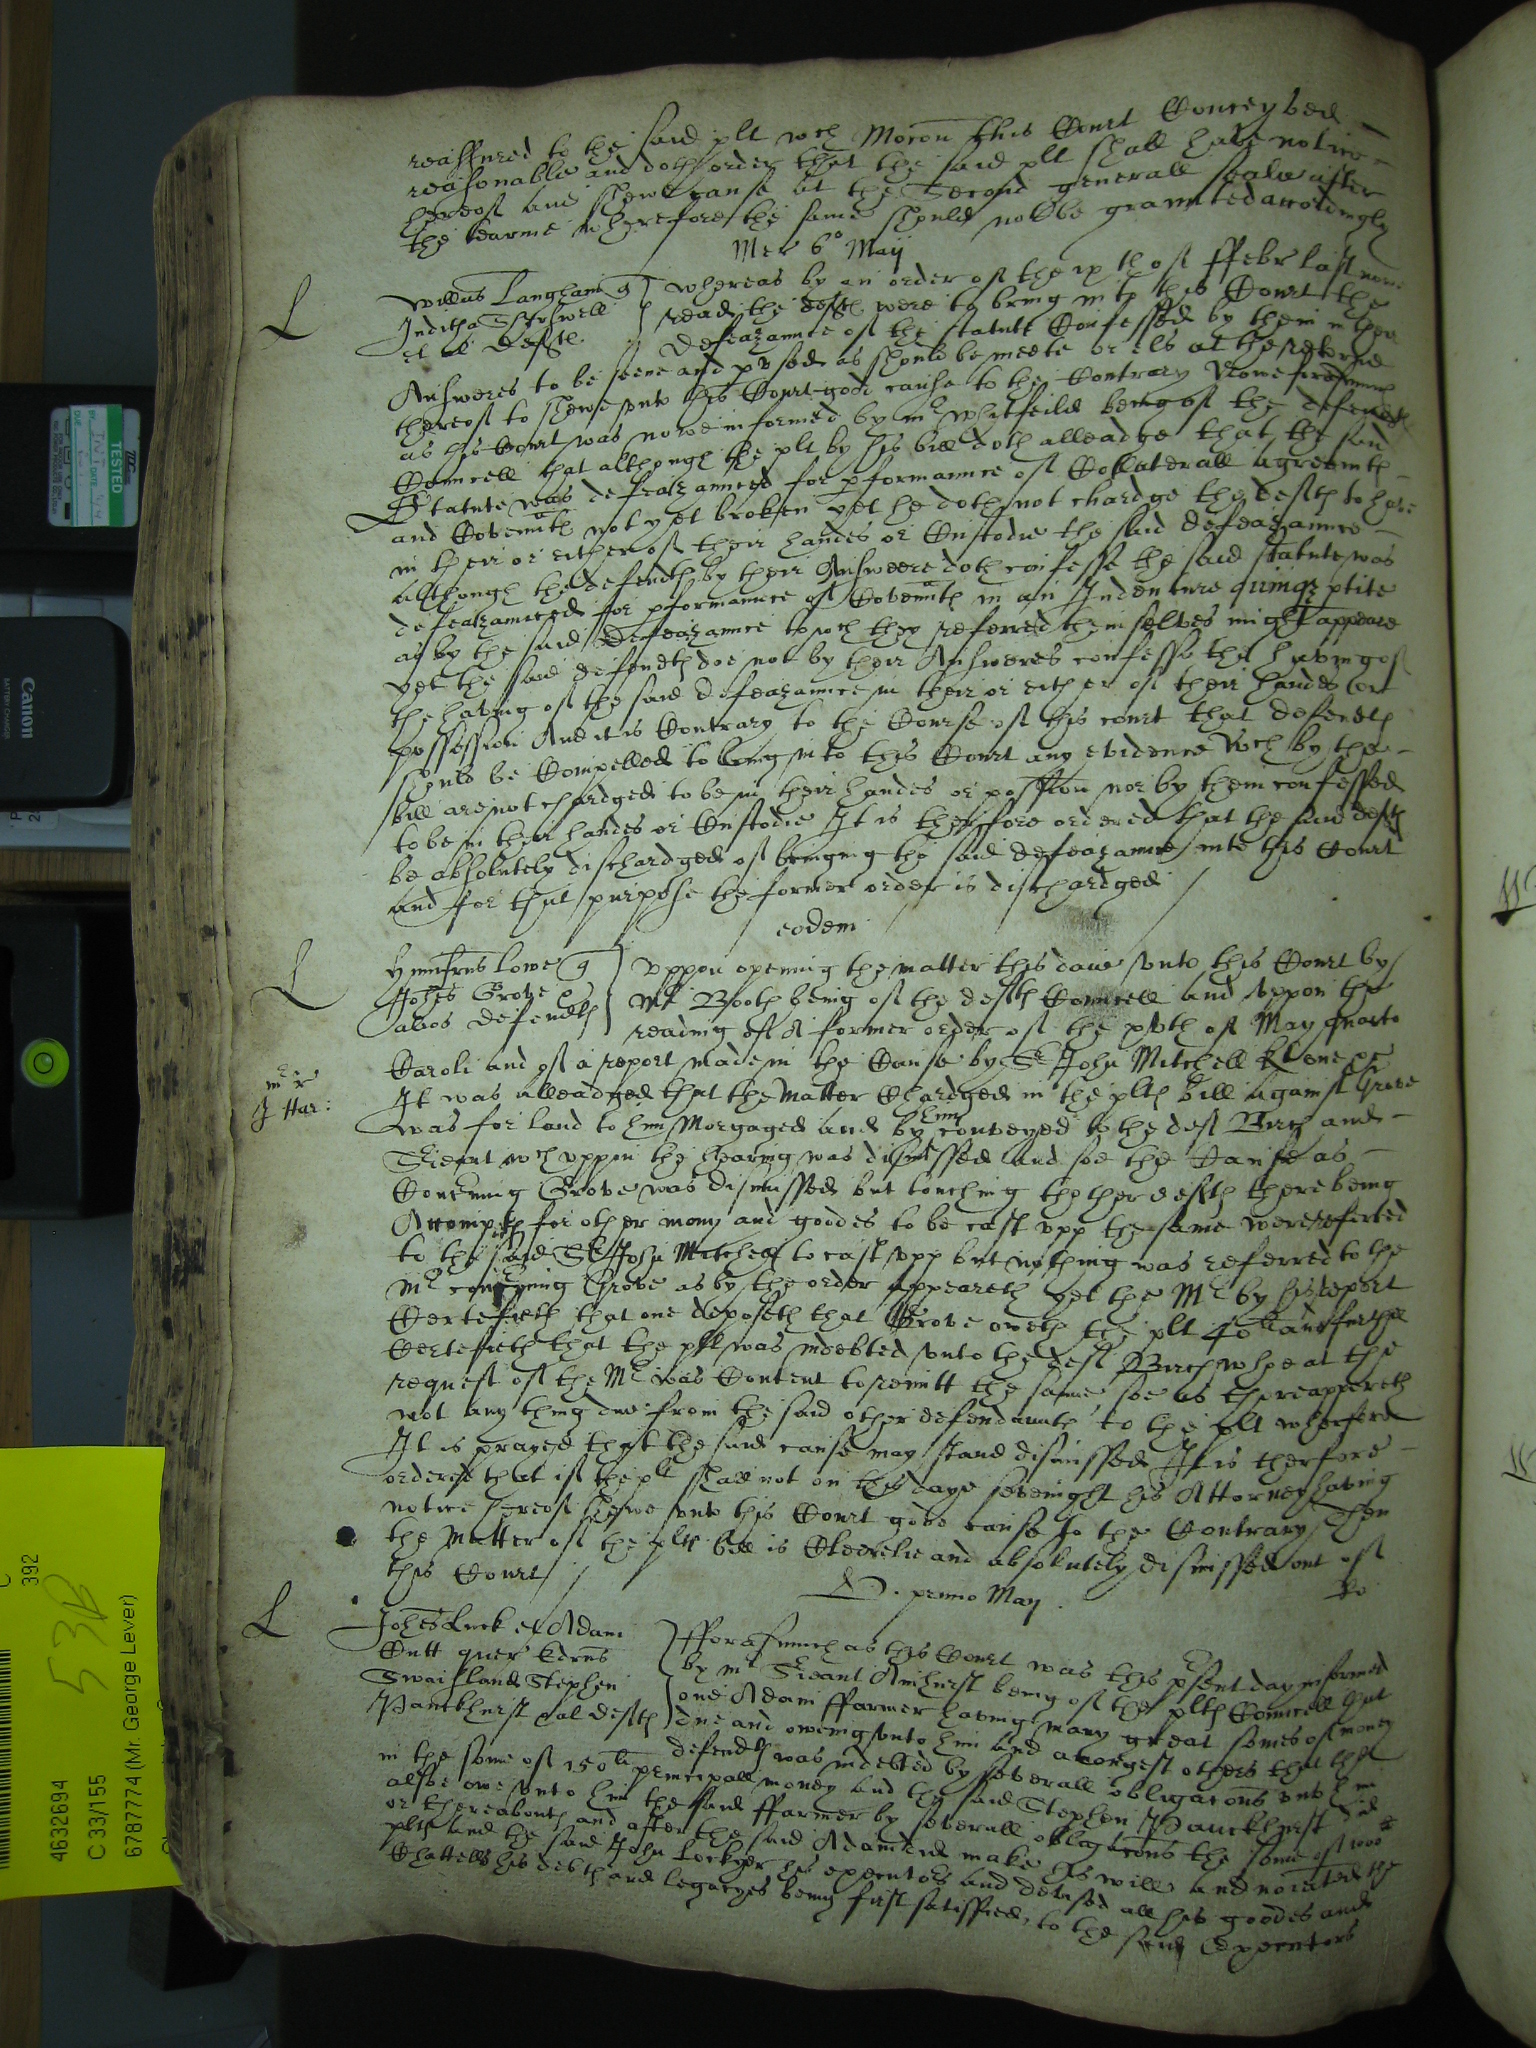 reassured to the said plt wch Mocon this Court Conceybed
reasonable and doth order that the said plt shall have notice
hereof and shewe cause at the Second generall seale after
the tearme wherefore the same should not be graunted accordingly
Mer 6o May
L
Willus Langham q whereas by an order of the ix th of ffebr last
Juditha read the defts were to bring into this Court the
et al defts defeazaunce of the statute Confessed by them in their
Answeres to be seene and vsed as should be meete or els at the retorne
thereof to shewe vnto this Court good cause to the Contrary Nowe forasmuch
as this Court was nowe informed by mr Whitfeild being of the defendts
Councell that although the plt by his bill doth alleadge that the said
Statute was defeazaunced for pformaunce of Collaterall agreemts
and Covenntes not yet broken yet he doth not chardge the defts to have
in their or either of their handes or Custodie the said defeazaunce
although the defendts by their Answeere doth confesse the said statute was
defeazaunced for pformaunce of Covenntes in an Indenture ptite
as by the said Defeazaunce to wch they referred themselves might appeare
yet the said defendts doe not by their Answeres confesse the having of
the having of the said defeazaunce in their or either of their handes or
possession And it is Contrary to the Course of this court that defendts
should be Compelled to bring into this Court any evidence wch by the
bill are not chardged to be in their handes or possion nor by them confessed
to be in their handes or Custodie It is therefore ordered that the said defts
be absolutely dischardged of bringing the said defeazaunce into this Court
and for that purpose the former order is dischardged
eodem
L
Humfrus Lowe q Vppon opening the matter this daie vnto this Court by
Johes Grove Mr Booth being of the defts Councell and vppon the
alios defendts reading of A former order of the xvth of May quarto
Caroli and of a report made in the Cause by Sr John Mitchell kt one &c
mr r
J Har:
It was alleadged that the Matter Chardged in the plts bill against Grove
was for land to him Morgaged and by him conveyed to the deft Birch and
wch vppon the hearing was dismissed and soe the Cause as
Concerning Grove was dismissed but touching thother defts there being
Accompts for other mony and goodes to be cast vpp the same were referred
to the said Sr John Mitchell to cast vpp but nothing was referred to the
Mr concerning Grove as by the order appeareth yet the Mr by his report
Certefieth that one deposeth that Grove oweth the plt 40li and further
Certefieth that the plt was indebted vnto the deft Birch whoe at the
request of the Mr was Content to remitt the same soe as there appereth
not any thing due from the said other defendaunts to the plt wherfore
It is prayed that the said cause may stand dismissed It is therfore
ordered that if the plt shall not on this daye sevenight his Attorney having
notice hereof shewe vnto this Court good cause to the Contrary Then
the Matter of the plts bill is Cleerelie and absolutely dismissed out of
this Court
D. primo May
L
Johes Luck et Adam fforasmuch as this Court was this psent day informed
Cutt quer by mr Sieant Amhurst being of the plts Councell that
Swaisland Stephen one Adam ffarmer having many great somes of money
Pauckhurst al defts due and oweing vnto him and amongest others that the
defendts was indebted by severall obligacons vnto him
in the some of 150li principall money and the said Stephen Pauckhurst did
alsoe owe vnto him the said ffarmer by severall obligacons the some of 100li
or thereabouts and after the said Adam did make his will and noiated the
plts and the said John Lockyer his executors and devised all his goodes and
Chattells his debts and legacyes being first satisfied, to the said Executors
TESTED
Canon
BATTERY CHARGER
C
392
53B
4632694
C 33/155
67877774 (Mr. George Lever)